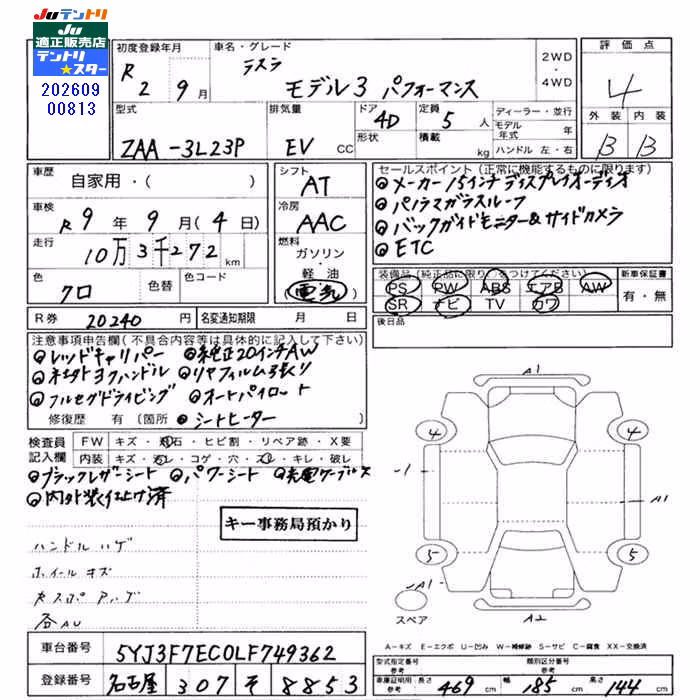 JUテントリ
JU
適正販売店
テントリ
★スター
202609
00813
初度登録年月
R 2 9月
車名・グレード
テスラ
モデル3 パフォーマンス
2WD
・
4WD
評価点
4
外装 内装
B B
型式
ZAA-3L23P
排気量
EV CC
ドア
4D
形状
定員
5 人
積載
kg
ディーラー・並行
モデル
年式 年
ハンドル 左・右
車歴
自家用・( )
車検
R 9年 9月(4日)
走行
10万3千272 km
色
クロ
色替
色コード
シフト
AT
冷房
AAC
燃料
ガソリン
・
軽油
電気
セールスポイント(正常に機能するものに限ります)
◎メーカー15インチディスプレイオーディオ
◎パノラマガラスルーフ
◎バックガイドモニター&サイドカメラ
◎ETC
装備品(純正品に限り○をつけてください)
PS PW ABS エアB AW
SR ナビ TV カワ
新車保証書
有・無
後日品
R券 20240円
名変通知期限 月 日
注意事項申告欄(不具合内容等は具体的に記入して下さい)
◎レッドキャリパー ◎純正20インチAW
◎ヒートハンドル ◎リヤフィルム張り
◎フルセルフドライビング ◎オートパイロット
修復歴 有(箇所 ◎シートヒーター
検査員
記入欄
FW キズ・飛石・ヒビ割・リペア跡・X要
内装 キズ・汚レ・コゲ・穴・スレ・キレ・破レ
◎ブラックレザーシート ◎パワーシート ◎充電ケーブル
◎内外装仕上げ済
キー事務局預かり
ハンドル ハゲ
ホイール キズ
各AU
A1
4 4
1
A1
5 5
A1
A2
スペア
A-キズ E-エクボ U-凹み W-補修跡 S-サビ C-腐食 XX-交換済
車台番号
5YJ3F7EC0LF749362
登録番号
名古屋 307 そ 8853
型式指定番号
参考
類別区分番号
参考
車庫証明用・長さ
参考 469 cm
幅
参考 185 cm
高さ
参考 144 cm